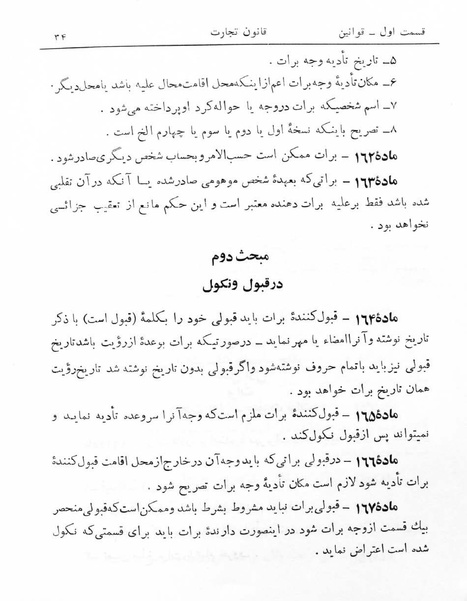 قسمت اول ـ قوانین
قانون تجارت
۳۴
۵ـ تاریخ تأدیه وجه برات .
۶ـ مکان تأدیهٔ وجه برات اعم از اینکه محل اقامت محال علیه باشد یا محل دیگر.
۷ـ اسم شخصیکه برات در وجه یا حواله کرد او پرداخته می‌شود .
۸ـ تصریح باینکه نسخهٔ اول یا دوم یا سوم یا چهارم الخ است .
مادهٔ ۱۶۲ ـ برات ممکن است حسب الامر و بحساب شخص دیگری صادر شود .
مادهٔ ۱۶۳ ـ براتی که بعهدهٔ شخص موهومی صادر شده یا آنکه در آن تقلبی
شده باشد فقط بر علیه برات دهنده معتبر است و این حکم مانع از تعقیب جزائی
نخواهد بود .
مبحث دوم
در قبول و نکول
مادهٔ ۱۶۴ ـ قبول کنندهٔ برات باید قبولی خود را بکلمهٔ (قبول است) با ذکر
تاریخ نوشته و آنرا امضاء یا مهر نماید ـ در صورتیکه برات بوعدهٔ از رؤیت باشد تاریخ
قبولی نیز باید با تمام حروف نوشته شود و اگر قبولی بدون تاریخ نوشته شد تاریخ رؤیت
همان تاریخ برات خواهد بود .
مادهٔ ۱۶۵ ـ قبول کنندهٔ برات ملزم است که وجه آنرا سر وعده تأدیه نماید و
نمیتواند پس از قبول نکول کند .
مادهٔ ۱۶۶ ـ در قبولی براتی که باید وجه آن در خارج از محل اقامت قبول کنندهٔ
برات تأدیه شود لازم است مکان تأدیهٔ وجه برات تصریح شود .
مادهٔ ۱۶۷ ـ قبولی برات نباید مشروط بشرط باشد و ممکن است که قبولی منحصر
بیك قسمت از وجه برات شود در اینصورت دارندهٔ برات باید برای قسمتی که نکول
شده است اعتراض نماید .